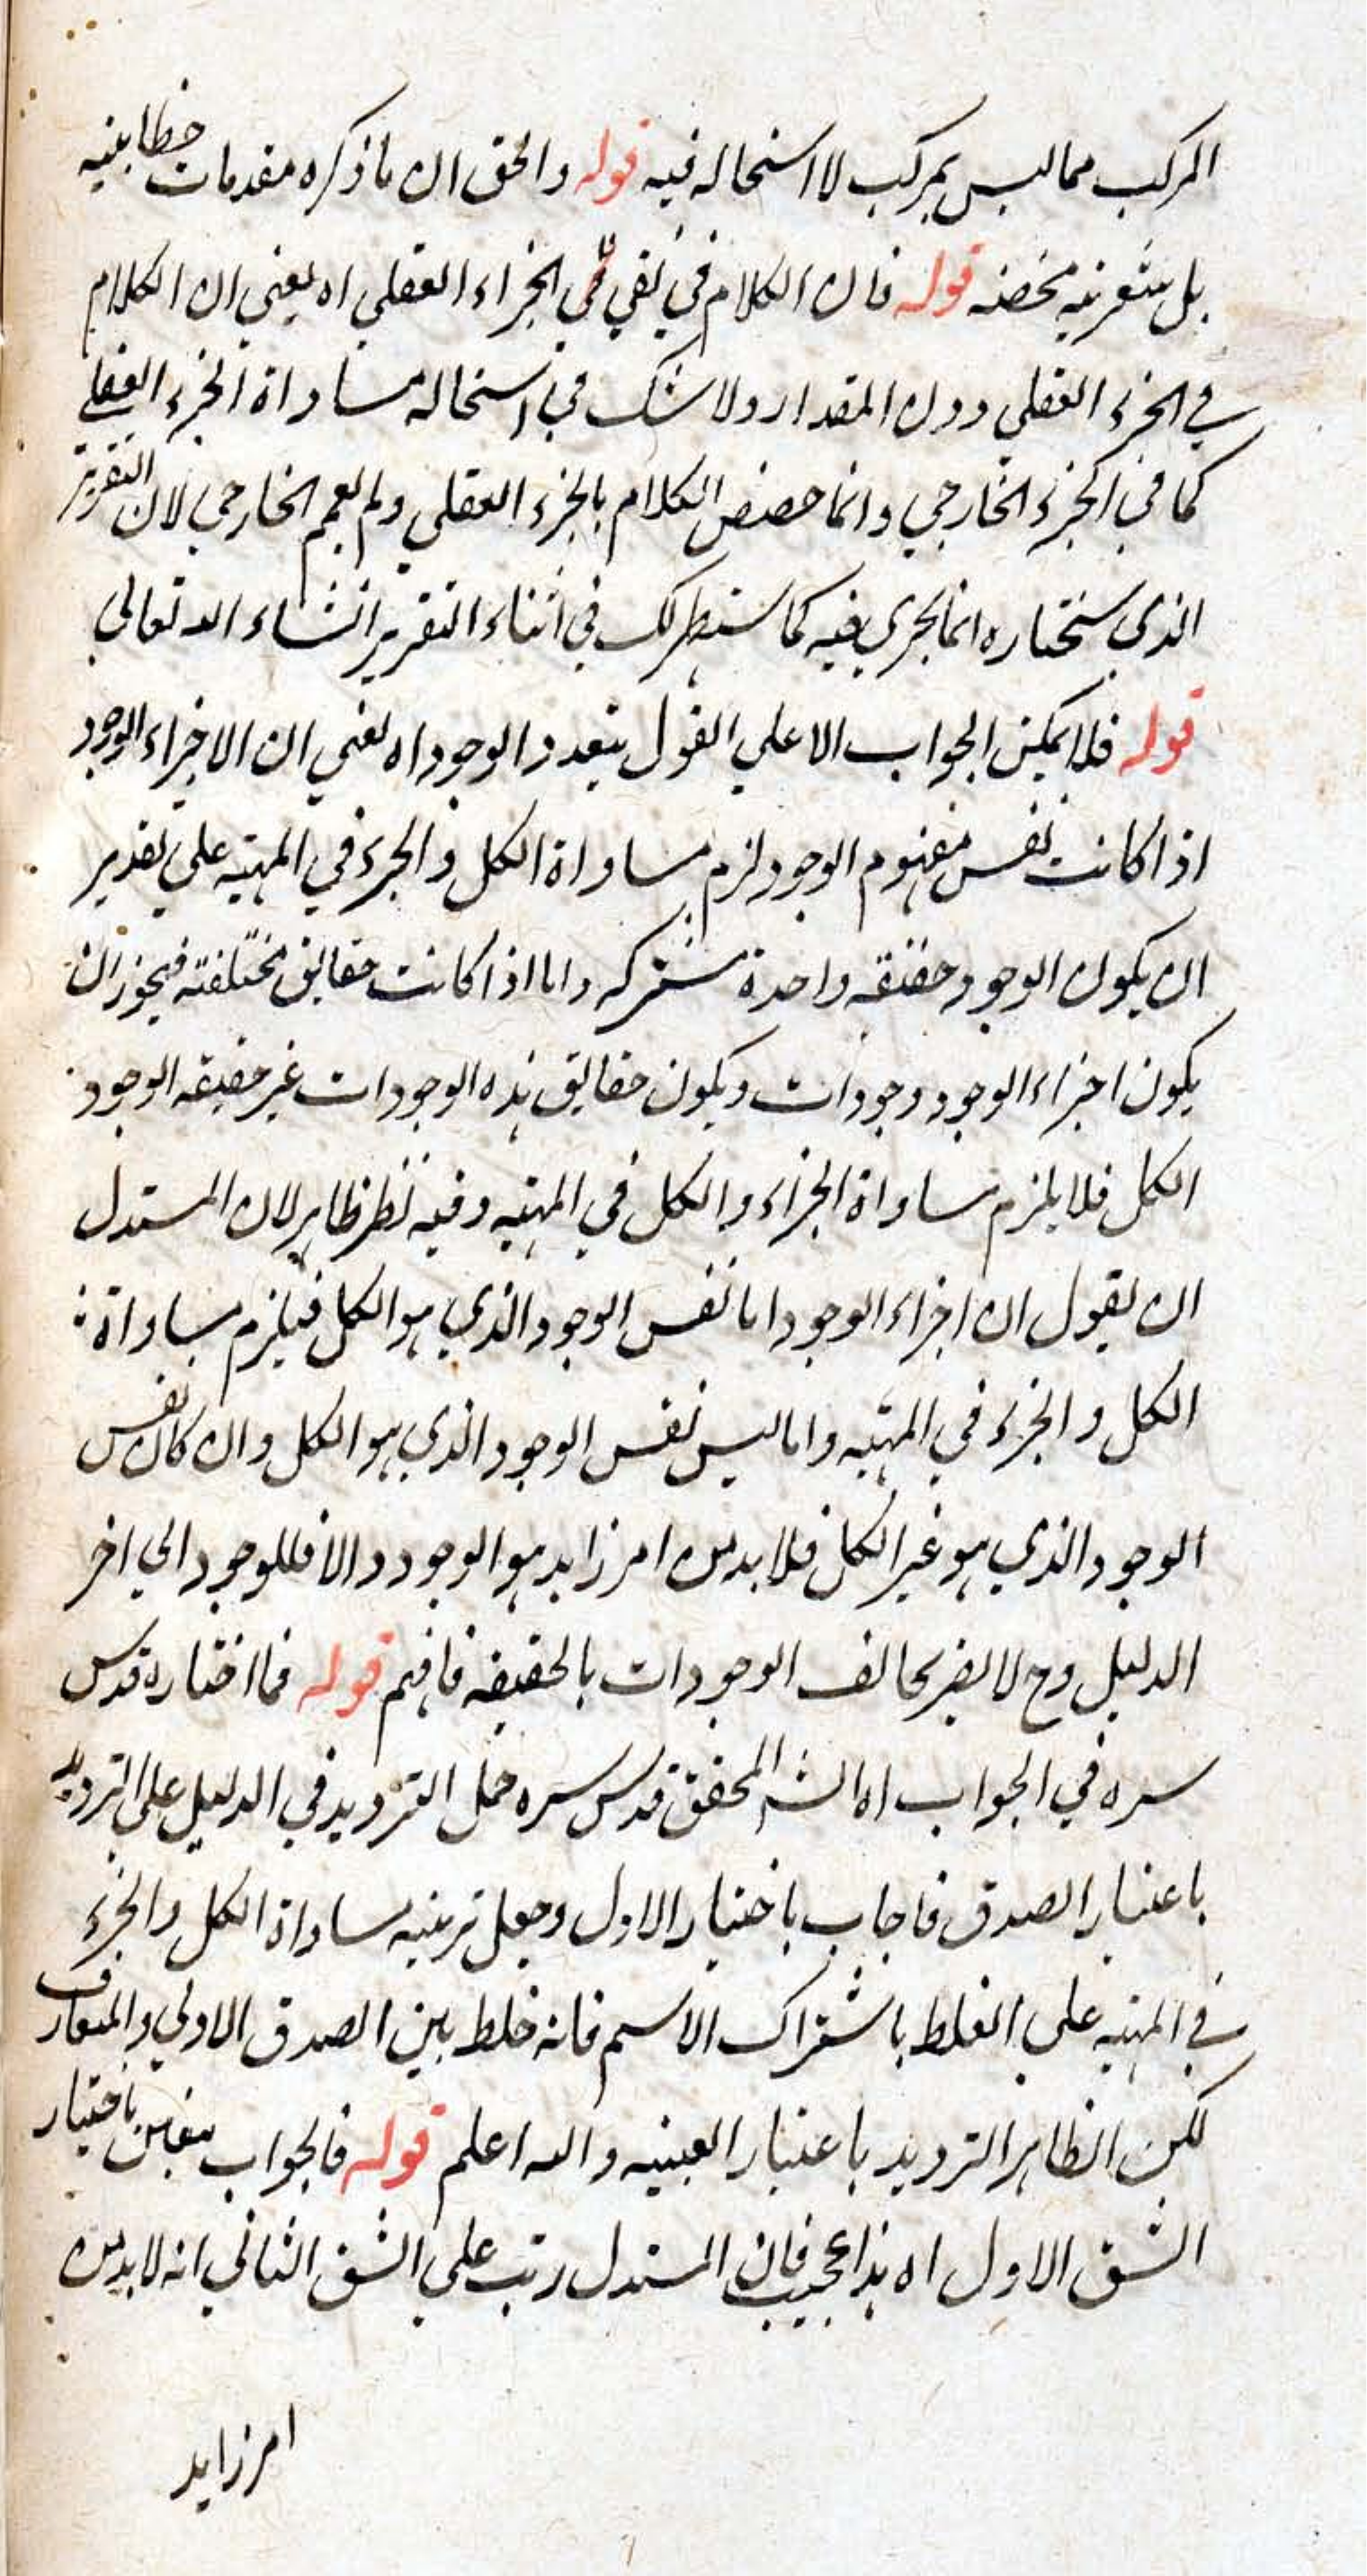 المركب مما ليس بمركب لا استحاله فيه قوله والحق ان ما ذكره مقدمات خطابيه
بل شعريه محضه قوله فان الكلام في نفي الجزاء العقلي اه يعني ان الكلام
في الجزء العقلي دون المقدار ولا شك في استحاله مساواة الجزء العقلي
كما في الجزء الخارجي وانما خصص الكلام بالجزء العقلي ولم يعمم الخارجي لان التقرير
الذي سنختاره انما يجري فيه كما سيظهر لك في اثناء التقرير انشاء الله تعالى
قوله فلا يمكن الجواب الا علي القول بتعدد الوجود اه يعني ان الاجزاء الوجود
اذا كانت نفس مفهوم الوجود لزم مساواة الكل والجزء في المهيه علي تقدير
ان يكون الوجود حقيقه واحدة مشتركه واما اذا كانت حقايق مختلفته فيجوز ان
يكون اجزاء الوجود وجودات ويكون حقايق هذه الوجودات غير حقيقه الوجود
الكل فلا يلزم مساواة الجزاء والكل في المهيه وفيه نظر ظاهر لان المستدل
ان يقول ان اجزاء الوجود اما نفس الوجود الذي هو الكل فيلزم مساواة
الكل والجزء في المهيه واما ليس نفس الوجود الذي هو الكل وان كان نفس
الوجود الذي هو غير الكل فلا بد من امر زايد هو الوجود والا فللوجود الي اخر
الدليل وح لا يضر تخالف الوجودات بالحقيقه فافهم قوله فما اختاره قدس
سره في الجواب اه الش المحقق قدس سره حمل الترديد في الدليل علي الترديد
باعتبار الصدق فاجاب باختيار الاول وجعل ترتيبه مساواة الكل والجزء
في المهيه علي الغلط باشتراك الاسم فانه خلط بين الصدق الاولي والمتعارف
لكن الظاهر الترديد باعتبار العينيه والله اعلم قوله فالجواب باختيار
الشق الاول اه هذا عجيب فان المستدل رتب علي الشق الثاني انه لا بد من
امر زايد